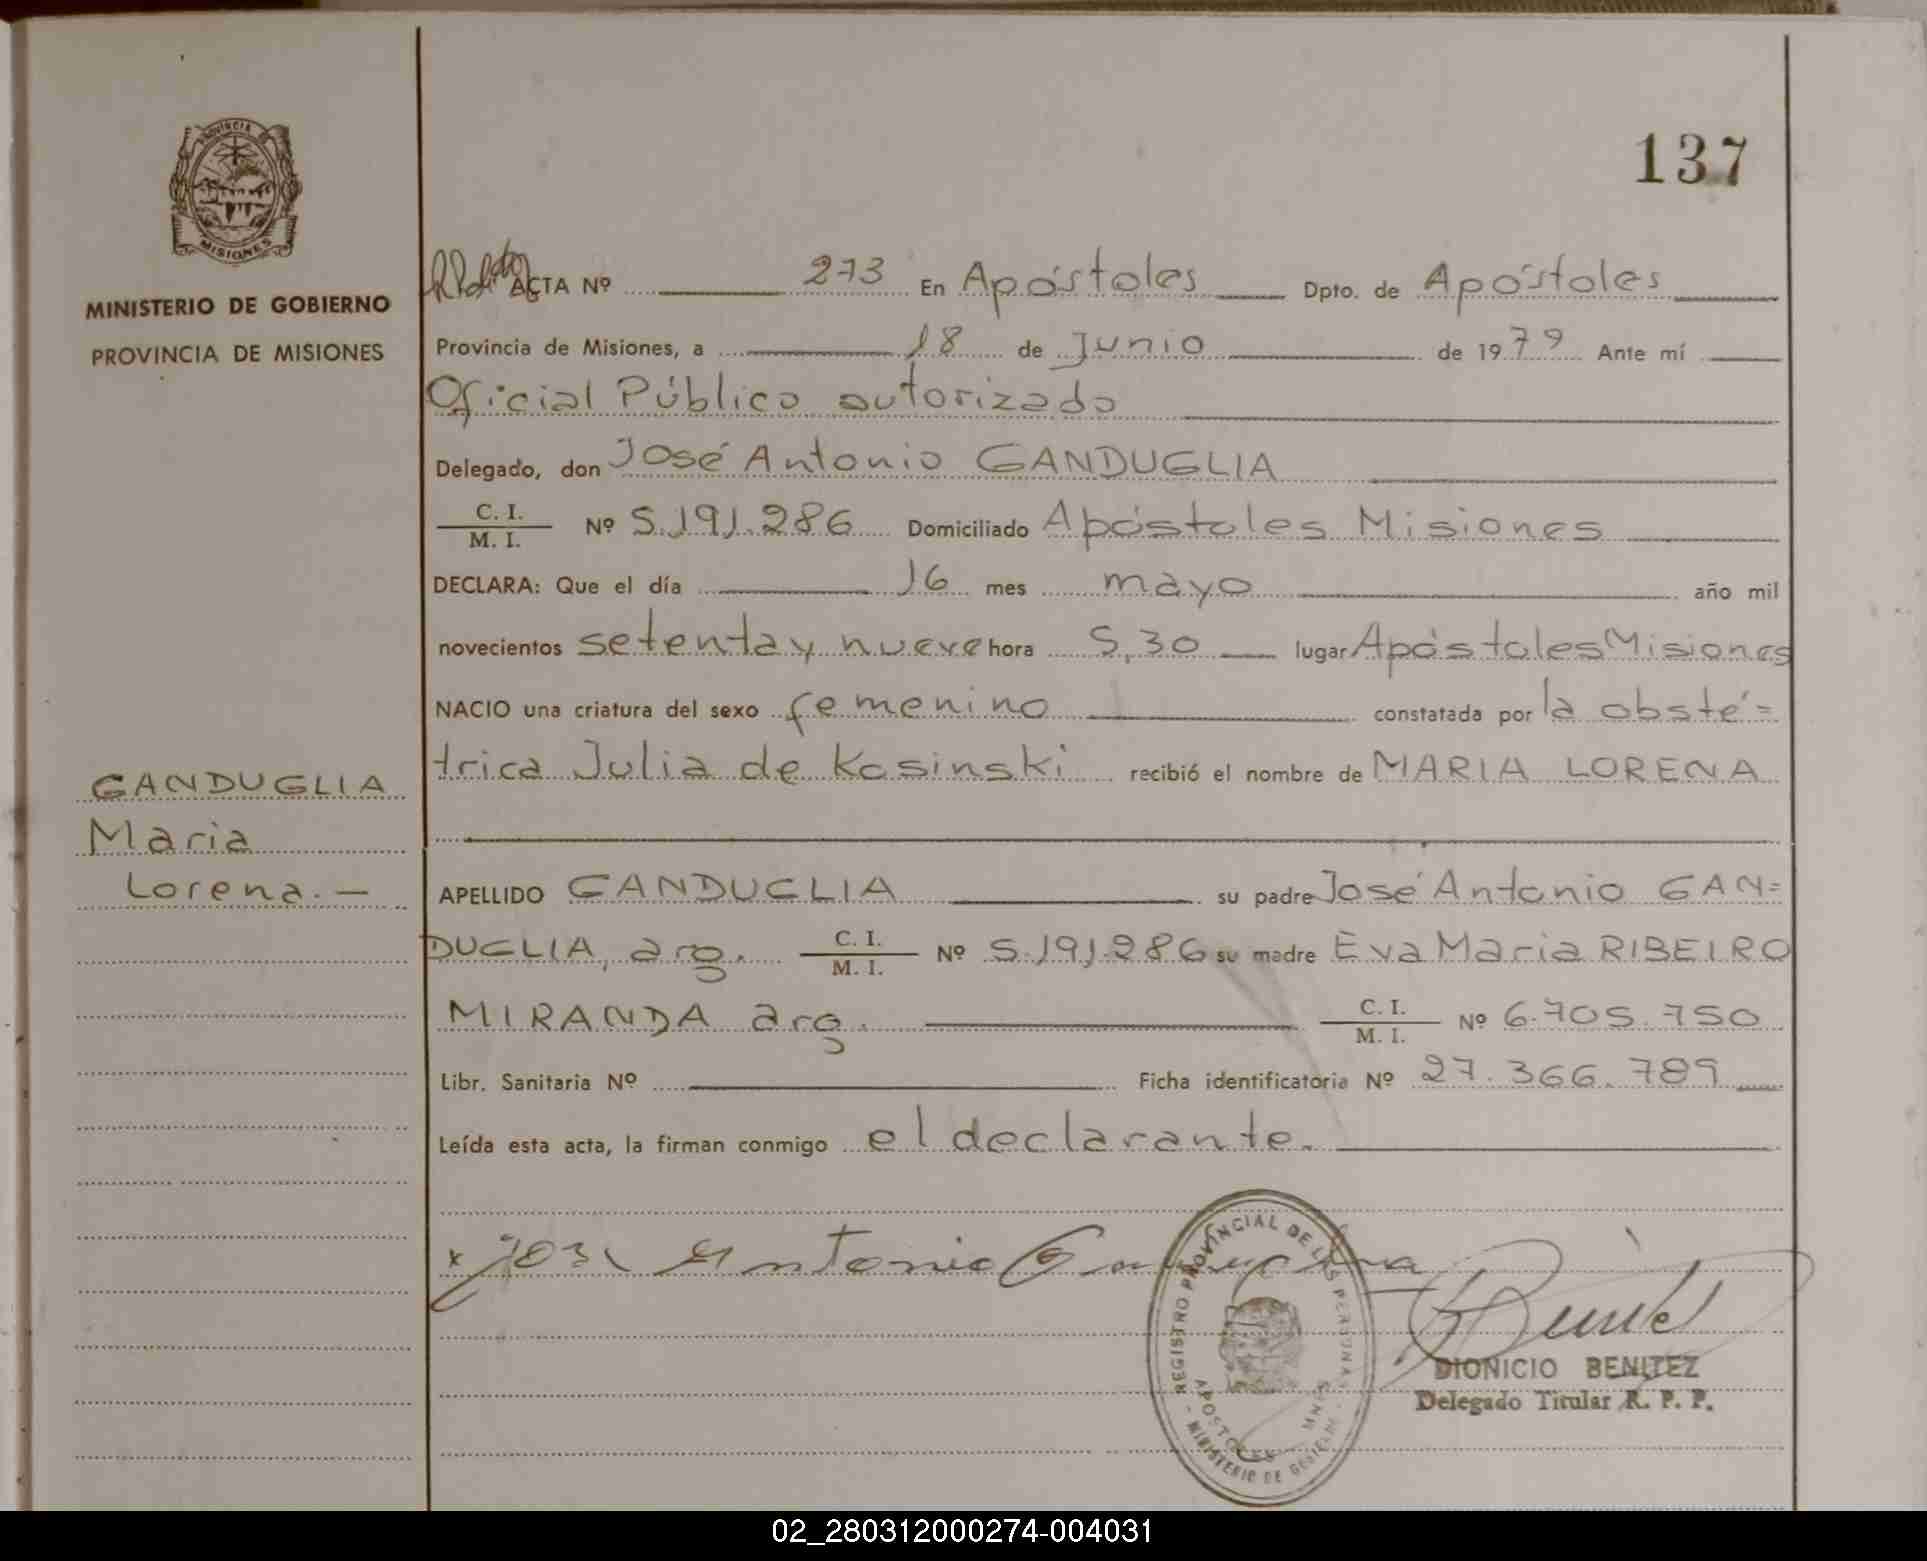 137
PROVINCIA DE
MISIONES
MINISTERIO DE GOBIERNO
PROVINCIA DE MISIONES
ACTA Nº 273 En Apóstoles Dpto. de Apóstoles
Provincia de Misiones, a 18 de Junio de 1979 Ante mí
Oficial Público autorizado
Delegado, don José Antonio GANDUGLIA
C. I.
M. I. Nº 5.191.286 Domiciliado Apóstoles Misiones
DECLARA: Que el día 16 mes mayo año mil
novecientos setenta y nueve hora 5,30 lugar Apóstoles Misiones
NACIO una criatura del sexo femenino constatada por la obsté=
trica Julia de Kosinski recibió el nombre de MARIA LORENA
GANDUGLIA
Maria
Lorena.—
APELLIDO GANDUGLIA su padre José Antonio GAN=
DUGLIA, arg. C. I.
M. I. Nº 5.191.286 su madre Eva Maria RIBEIRO
MIRANDA arg. C. I.
M. I. Nº 6.705.750
Libr. Sanitaria Nº Ficha identificatoria Nº 27.366.789
Leída esta acta, la firman conmigo el declarante.
x José Antonio Ganduglia
REGISTRO PROVINCIAL DE LAS PERSONAS
APOSTOLES - MNES
- MINISTERIO DE GOBIERNO -
DIONICIO BENITEZ
Delegado Titular R. P. P.
02_280312000274-004031